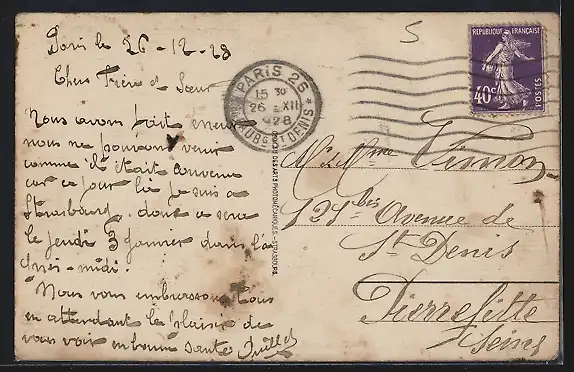 Paris le 26-12-28
Chers Frère et Sœur
Nous avons fait erreur
nous ne pouvons venir
comme il était convenu
car ce jour là je suis a
Strasbourg. donc a vous
le jeudi 3 janvier dans l'a
près-midi.
Nous vous embrassons tous
en attendant le plaisir de
vous voir en bonne santé
PARIS 25
15 30
26 XII
928
R. DU FAUBG ST DENIS
DES ARTS PHOTOMÉCANIQUES - STRASBOURG.
5
REPUBLIQUE FRANÇAISE
40c
POSTES
Mr & Mme Vimon
121 bis Avenue de
St Denis
Pierrefitte
Seine